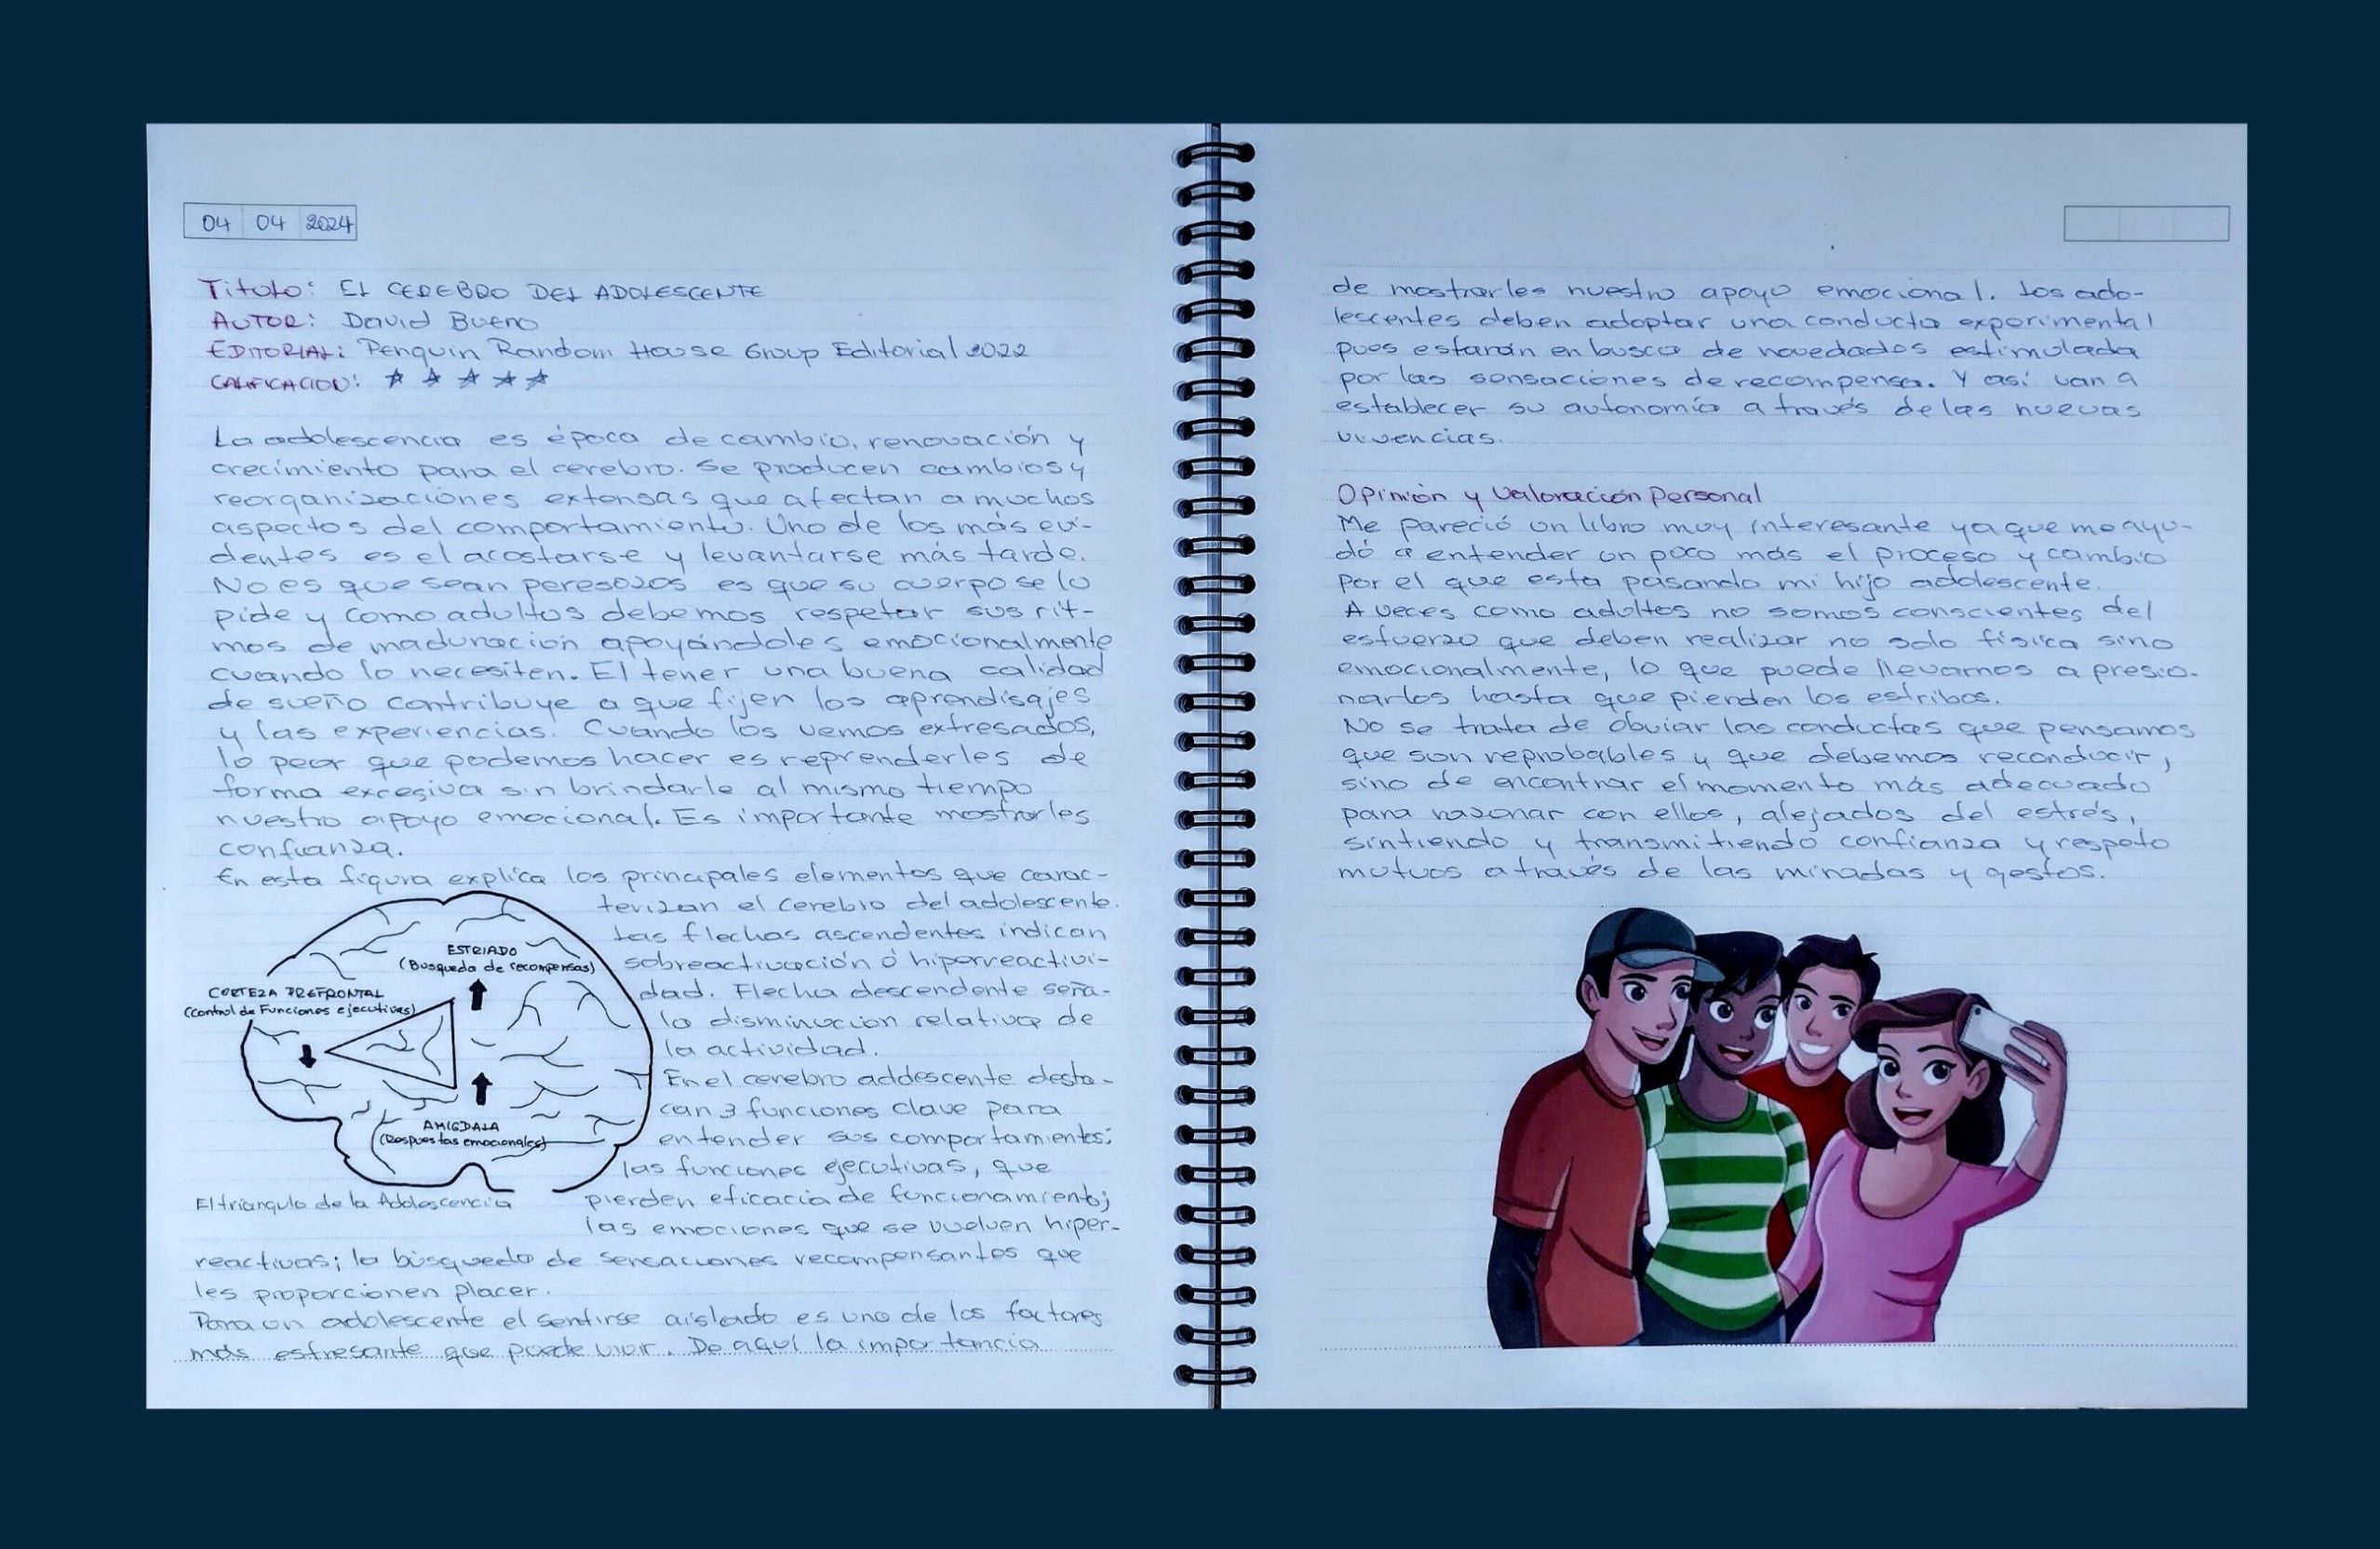 04 04 2024
Título: EL CEREBRO DEL ADOLESCENTE
AUTOR: David Bueno
EDITORIAL: Penguin Random House Group Editorial 2022
CALIFICACION: ☆ ☆ ☆ ☆ ☆
La adolescencia es época de cambio, renovación y
crecimiento para el cerebro. Se producen cambios y
reorganizaciones extensas que afectan a muchos
aspectos del comportamiento. Uno de los más evi-
dentes es el acostarse y levantarse más tarde.
No es que sean peresozos es que su cuerpo se lo
pide y como adultos debemos respetar sus rit-
mos de maduración apoyándoles emocionalmente
cuando lo necesiten. El tener una buena calidad
de sueño contribuye a que fijen los aprendisajes
y las experiencias. Cuando los vemos extresados,
lo peor que podemos hacer es reprenderles de
forma excesiva sin brindarle al mismo tiempo
nuestro apoyo emocional. Es importante mostrarles
confianza.
En esta figura explica los principales elementos que carac-
terizan el cerebro del adolescente.
Las flechas ascendentes indican
sobreactivación ó hiperreactivi-
dad. Flecha descendente seña-
la disminucion relativa de
la actividad.
En el cerebro adolescente desta-
can 3 funciones clave para
entender sus comportamientos:
las funciones ejecutivas, que
pierden eficacia de funcionamiento;
las emociones que se vuelven hiper-
reactivas; la búsqueda de sensaciones recompensantes que
les proporcionen placer.
Para un adolescente el sentirse aislado es uno de los factores
más estresante que puede vivir. De aquí la importancia
ESTRIADO
(Búsqueda de recompensas)
CORTEZA PREFRONTAL
(Control de Funciones ejecutivas)
AMIGDALA
(Respuestas emocionales)
El triángulo de la Adolescencia
de mostrarles nuestro apoyo emocional. Los ado-
lescentes deben adoptar una conducta experimental
pues estarán en busca de novedades estimulada
por las sensaciones de recompensa. Y así van a
establecer su autonomía a través de las nuevas
vivencias.
Opinión y Valoración Personal
Me pareció un libro muy interesante ya que me ayu-
dó a entender un poco más el proceso y cambio
por el que esta pasando mi hijo adolescente.
A veces como adultos no somos conscientes del
esfuerzo que deben realizar no solo física sino
emocionalmente, lo que puede llevarnos a presio-
narlos hasta que pierden los estribos.
No se trata de obviar las conductas que pensamos
que son reprobables y que debemos reconducir,
sino de encontrar el momento más adecuado
para razonar con ellos, alejados del estrés,
sintiendo y transmitiendo confianza y respeto
mutuos a través de las miradas y gestos.